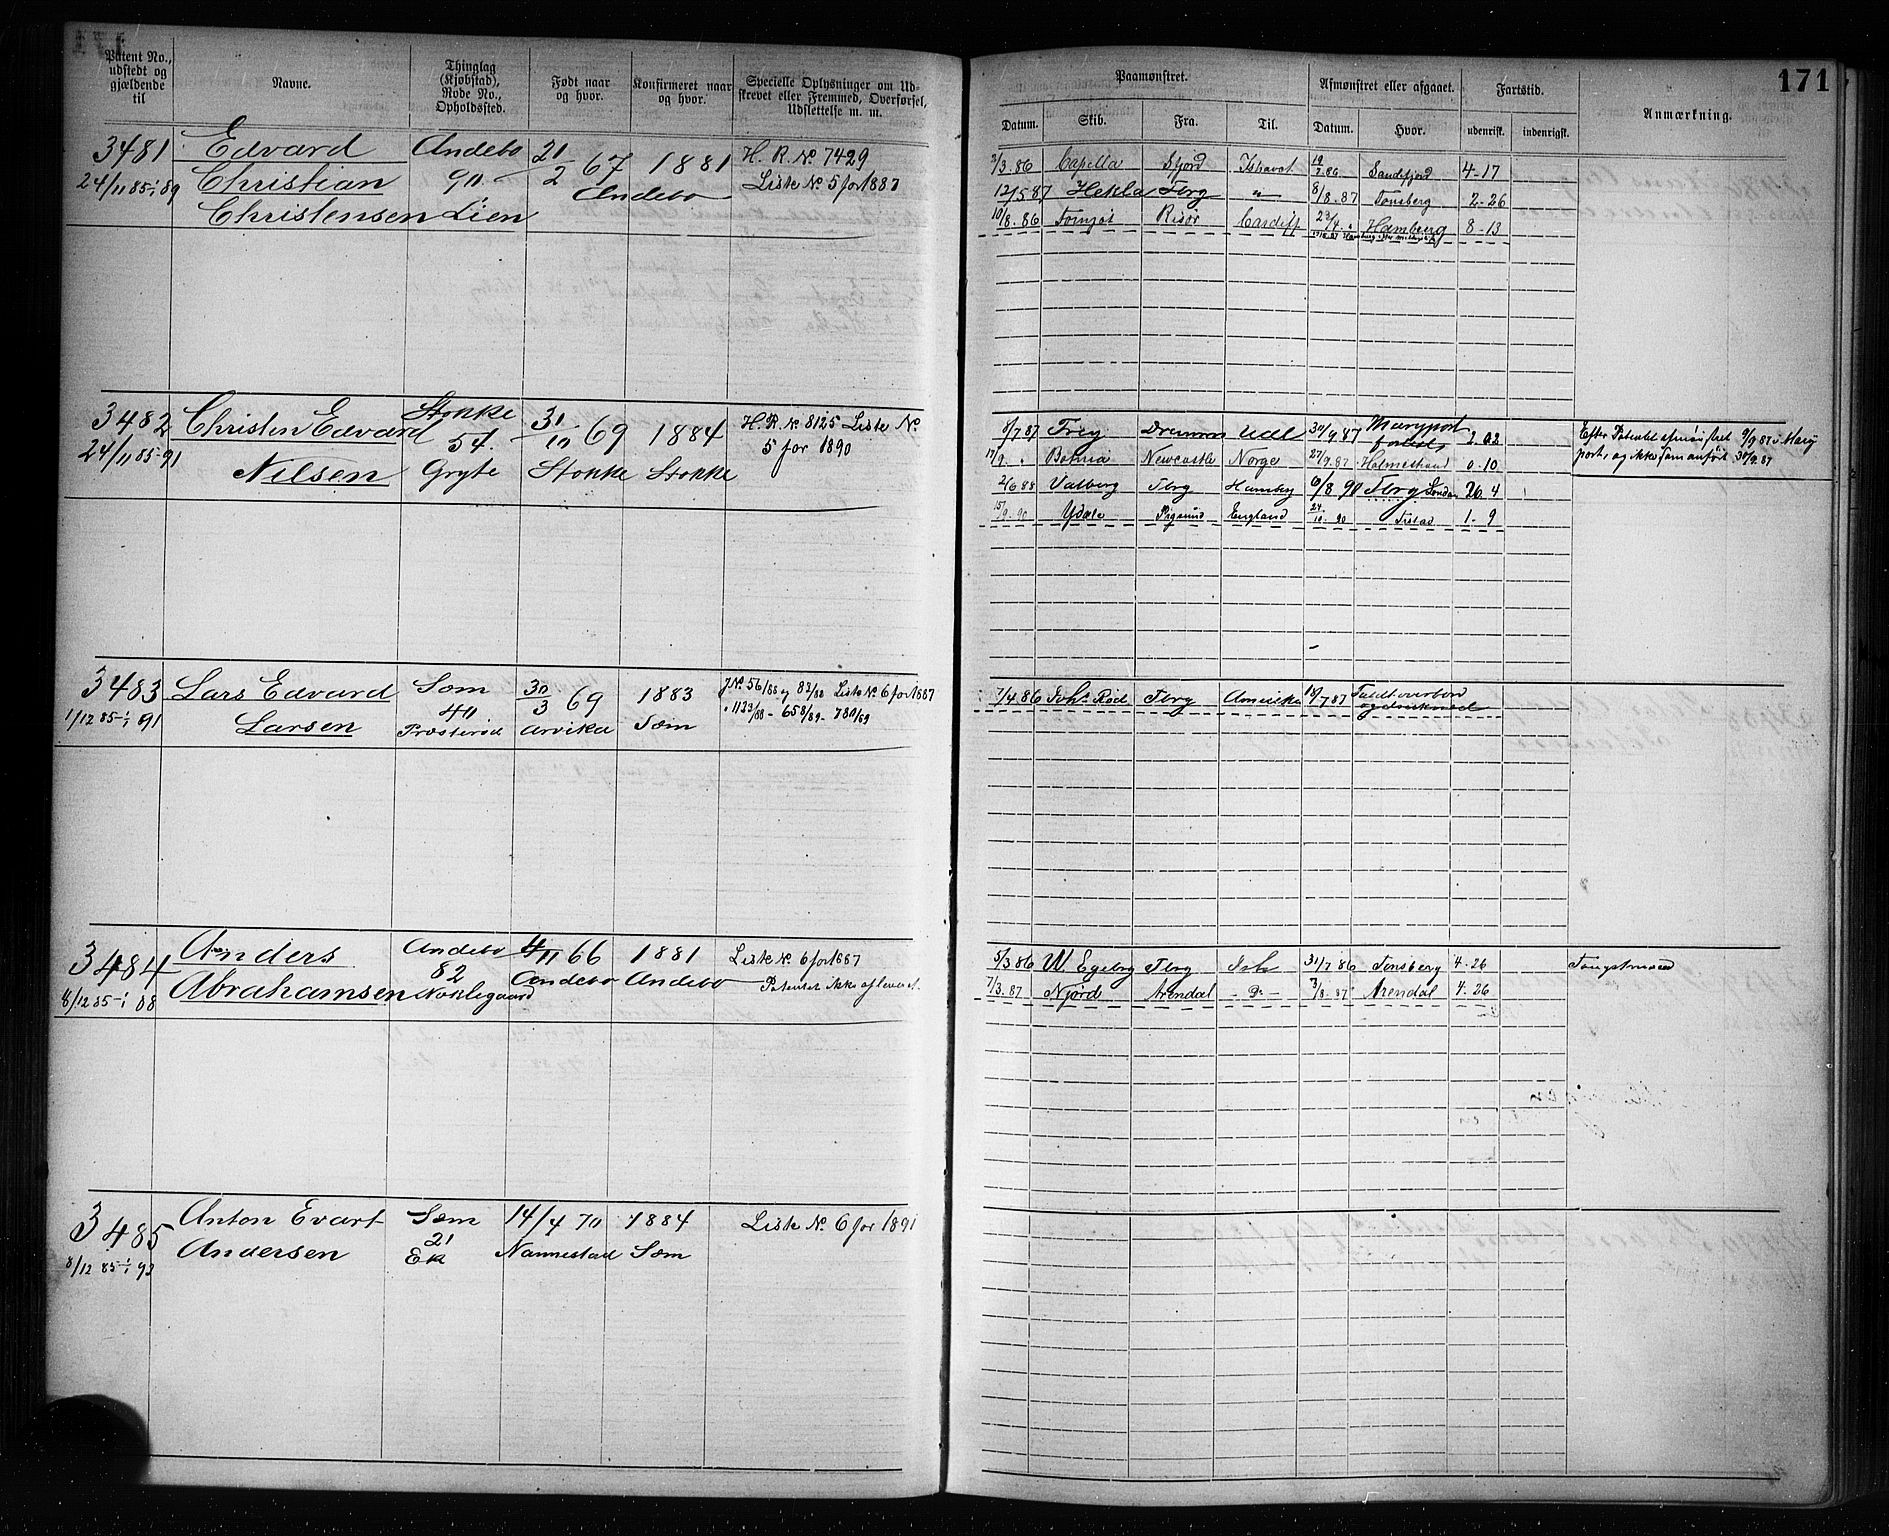 171
Patent No., udstedt og gjældende til
Navne.
Thinglag (Kjøbstad), Rode No., Opholdssted.
Født naar og hvor.
Konfirmeret naar og hvor.
Specielle Oplysninger om Udskrevet eller Fremmed, Overførsel, Udslettelse m. m.
Paamønstret.
Datum. Skib. Fra. Til.
Afmønstret eller afgaaet.
Datum. Hvor.
Fartstid.
udenrigsk. indenrigsk.
Anmærkning.
3481 Edvard Andebo 21/2 67 1881 H. R. No 7429
24/11 85-1/1 89 Christian 90 Andebo Liste No. 5 for 1887
Christensen Lien
3/3. 86 Capella Sfjord Ishavet 19/7 86 Sandefjord 4-17
12/5 87 Hekla Tbrg " 8/8. 87 Tønsberg 2-26
10/8. 86 Fornjot Risør Cardiff 23/4 " Hamburg 8-13
3482 Christen Edvard Stokke 31/10 69 1884 H. R. No 8125 Liste No.
24/11 85-1/1 91 54 5 for 1890
Nilsen Gryte Stokke Stokke
8/7 87 Frey Drammen Udl 30/9 87 Maryport
17/9. " Botnia Newcastle Norge 27/9. 87 Holmestrand 0-10
2/6 88 Valborg Tbrg Hamburg 6/8 90 Tbrg London 26 4
15/9. 90 Ydale England 24/10. 90 1-9
Efter Patentet afmønstret 9/9 87 i Mary
port, og ikke som anført 30/9. 87
3483 Lars Edvard Sem 30/3 69 1883 J No. 56/88 og 82/88 Liste No. 6 for 1887
1/12 85-1/1 91 40 " 1133/88 - 658/89 - 780/89
Larsen Præsterød Arvika Sem
7/4. 86 Johs Rød Tbrg Amerika 18/7 87 Faldt overbord
og druknede
3484 Anders Andebo 4/11 66 1881 Liste No. 6 for 1887
8/12 85-1/1 88 82
Abrahamsen Noklegaard Andebo Andebo Patentet ikke afleveret.
5/3 86 W Egebrg Tbrg Ish 31/7 86 Tønsberg 4-26
7/3. 87 Njørd Arendal - Do - 3/8. 87 Arendal 4. 26
Fangstmand
3485 Anton Evart Sem 14/4 70 1884 Liste No. 6 for 1891
8/12 85-1/1 93 21
Andersen Ek Nannestad Sem